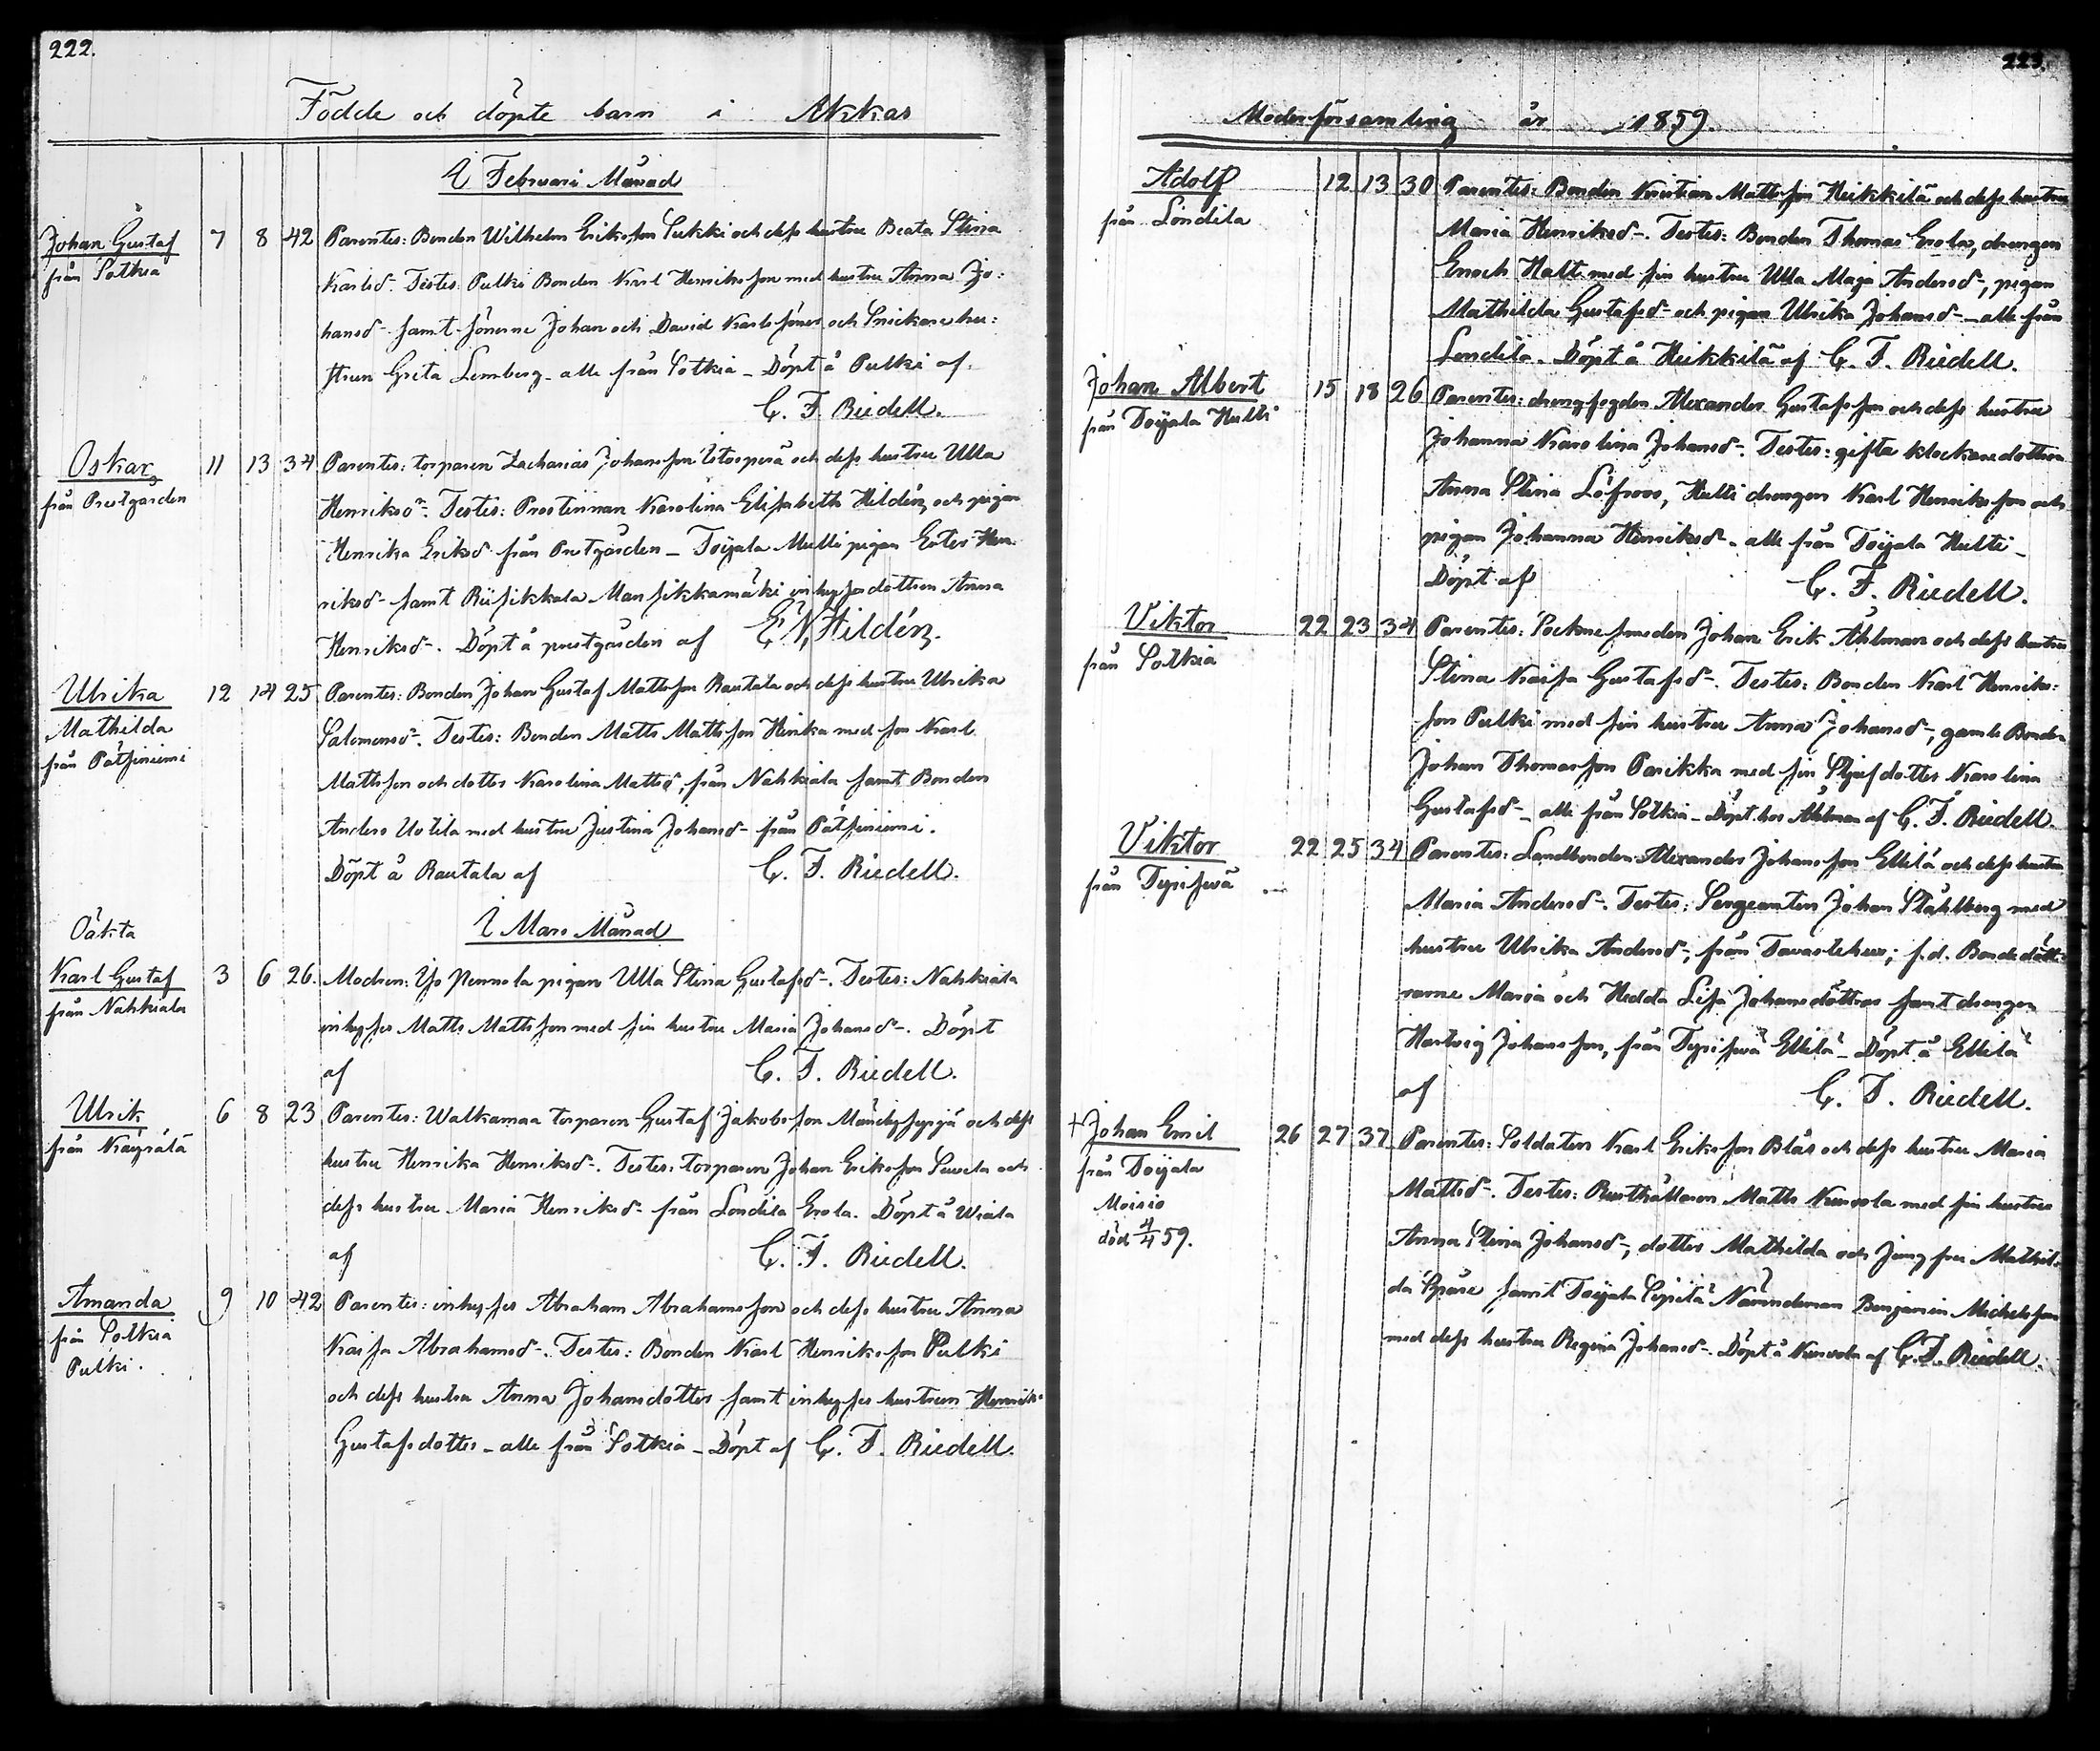 222.
Födde och döpte barn i Akkas
I Februari Månad
Johan Gustaf 7 8 42 Parentes: Bonden Wilhelm Eriksson Sukki och dess hustru Beata Stina
från Sotkia
Karlsd-. Testes: Pulki Bonden Karl Henriksson med hustru Anna Jo:
hansd- samt sönerne Johan och David Karlssöner och Snickarehu:
strun Greta Lemberg - alle från Sotkia - Döpt å Pulki af
C. F. Riedell.
Oskar 11 13 34 Parentes: torparen Zacharias Johansson och dess hustru Ulla
från Prestgården
Henriksd-. Testes: Prostinnan Karolina Elisabeth Hildén, och pigan
Henrika Eriksd- från Prstgården - Toijala Multi pigan Ester Hen
riksd- samt Riisikkala Mansikkamäki inhysesdottern Anna
Henriksd-. Döpt å prestgården af E. N. Hildén.
Ulrika 12 14 25 Parentes: Bonden Johan Gustaf Mattsson Rautala och dess hustru Ulrika
Mathilda
från Pätsiniemi
Salomonsd-. Testes: Bonden Matts Mattsson Heikka med son Karl
Mattsson och dotter Karolina Mattsd-, från Nahkiala samt Bonden
Anders Uotila med hustru Justina Johansd- från Pätsiniemi.
Döpt å Rautala af C. F. Riedell.
I Mars Månad
Oäkta
Karl Gustaf 3 6 26. Modren: Ylö Nennola pigan Ulla Stina Gustafsd-. Testes: Nahkiala
från Nahkiala
inhyses Matts Mattsson med sin hustru Maria Johansd-. Döpt
af C. F. Riedell.
Ulrik 6 8 23 Parentes: Walkamaa torparen Gustaf Jakobsson och dess
från Käyrälä
hustru Henrika Henriksd-. Testes: torparen Johan Eriksson Suvela och
dess hustru Maria Henriksd- från Londila Erola. Döpt å Wiala
af C. F. Riedell.
Amanda 9 10 42 Parentes: inhyses Abraham Abrahamsson och dess hustru Anna
från Sotkia
Pulki.
Kaisa Abrahamsd-. Testes: Bonden Karl Henriksson Pulki
och dess hustru Anna Johansdotter samt inhyses hustrun Henrik:
Gustafsdotter - alle från Sotkia - Döpt af C. F. Riedell.
223.
Moderförsamling år 1859.
Adolf 12 13 30 Parentes: Bonden Kristian Mattsson Heikkilä och dess hustru
från Londila
Maria Henriksd-. Testes: Bonden Thomas Erola, drengen
Enoch Matts med sin hustru Ulla Maja Andersd-, pigan
Mathilda Gustafsd- och pigan Ulrika Johansd- - alle från
Londila. Döpt å Heikkilä af C. F. Riedell.
Johan Albert 15 18 26 Parentes: drengfogden Alexander Gustafsson och dess hustru
från Toijala Hulti
Johanna Karolina Johansd-. Testes: gifta klockaredottren
Anna Stina Löfroos, Hulti drengen Karl Henriksson och
pigan Johanna Henriksd- - alle från Toijala Hulti -
Döpt af C. F. Riedell.
Viktor 22 23 34 Parentes: Sockne smeden Johan Erik Åhlman och dess hustru
från Sotkia
Stina Kaisa Gustafsd-. Testes: Bonden Karl Henriks:
son Pulki med sin hustru Anna Johansd-, gamle Bonden
Johan Thomasson Parikka med sin Styfdotter Karolina
Gustafsd- - alle från Sotkia - Döpt hos Åhlman af C. F. Riedell.
Viktor 22 25 34 Parentes: Landbonden Alexander Johansson Ellilä och dess hustru
från Tyrisevä
Maria Andersd-. Testes: Sergeanten Johan Ståhlberg med
hustru Ulrika Andersd-, från Tavastehus; f.d. Bonde dött:
rarne Maria och Hedda Lisa Johansdöttrar samt drengen
Hartvig Johansson, från Tyrisevä Ellilä - Döpt å Ellilä
af C. F. Riedell.
+ Johan Emil 26 27 37 Parentes: Soldaten Karl Eriksson Blås och dess hustru Maria
från Toijala
Moisio
död 4/4 59.
Mattsd-. Testes: Rusthållaren Matts Kurvola med sin hustru
Anna Stina Johansd-, dotter Mathilda och Jungfru Mathil:
da Spåre samt Toijala Sipilä Nämndeman Benjamin Michelsson
med dess hustru Regina Johansd-. Döpt å Kurvola af C. F. Riedell.